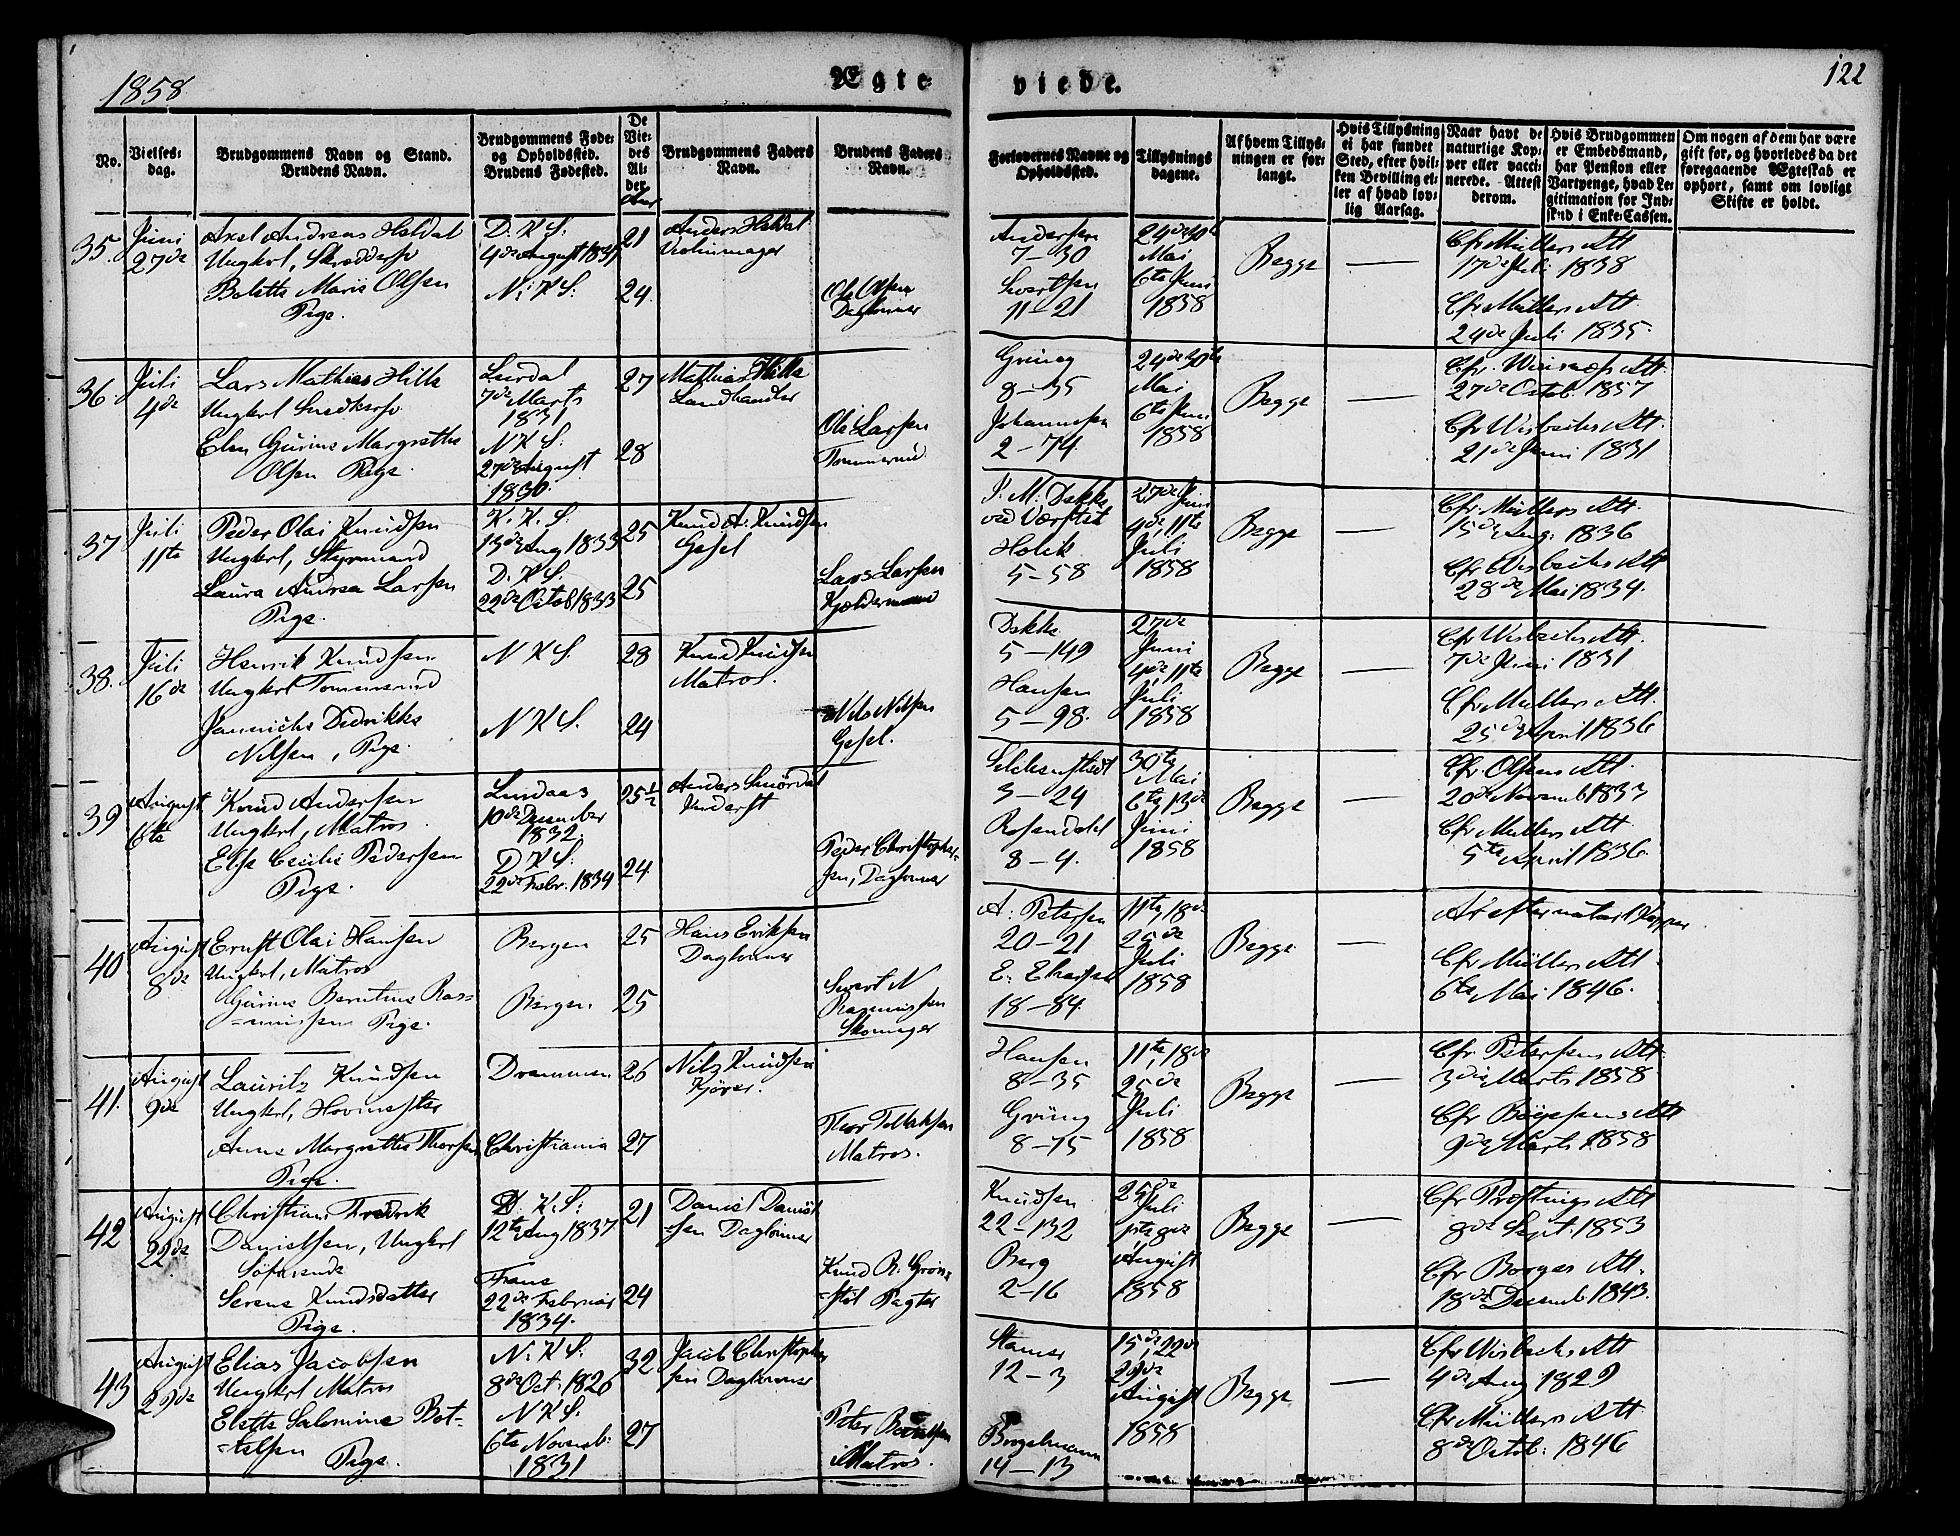 1858
Ægte
viede.
122
No.
Vielses-
dag.
Brudgommens Navn og Stand.
Brudens Navn.
Brudgommens Føde-
og Opholdssted.
Brudens Fødested.
De
Vie-
des
Al-
der.
Aar
Brudgommens Faders
Navn.
Brudens Faders
Navn.
Forlovernes Navne og
Opholdssted.
Tillysnings
dagene.
Af hvem Tillys-
ningen er for-
langt.
Hvis Tillysning
ei har fundet
Sted, efter hvil-
ken Bevilling el-
ler af hvad lov-
lig Aarsag.
Naar havt de
naturlige Kop-
per eller vacci-
nerede. Attest
derom.
Hvis Brudgommen
er Embedsmand,
har Pension eller
Vartpenge, hvad Le-
gitimation for Ind-
skud i Enke-Cassen.
Om nogen af dem har være
gift før, og hvorledes da det
foregaaende Ægteskab er
ophørt, samt om lovligt
Skifte er holdt.
35.
Juni
27de
Axel Andreas Heldal
Ungkrl,
Beletta Marie Olsen
Pige.
D. K. S.
4de August
N. K. S.
21
24.
Anders Heldal
Ole Olsen
Daglønner
Andersen
7-30
Sivertsen
11-21
24de 30te
Mai
6te Juni
1858
Begge
Cfr Müllers Att
17de Juli 1838
Cfr Müllers Att
24de Juli 1835.
36.
Juli
4de
Lars Mathias Hille
Ungkrl
Elen Gurine Margrethe
Olsen Pige.
7de Marts
1831
N. K. S.
27de August
1830.
27
28
Mathias Hille
Landhandler
Ole Larsen
Tømmermd
Grung
8-35
Johannesen
2-74.
24de 30te
Mai
6te Juni
1858
Begge
27de Octob. 1857
Cfr Wisbechs Att.
21de Juni 1831
37
Juli
11te
Peder Olai Knudsen
Ungkrl, Styrmand
Laura Andrea Larsen
Pige.
K. K. S.
13de Aug 1833
D. K. S.
22de Octob 1833
25
25
Knud A. Knudsen
Gesel
Lars Larsen
J. M. Dekke
ved Værftet
Holck
5-58
27de Juni
4de, 11te
Juli
1858
Begge
Cfr Müllers Att.
15de Aug: 1836
Cfr Wisbechs Att
28de Mai 1834.
38.
Juli
16de
Henrik Knudsen
Ungkrl Tømmermd
Jannicke Didrikke
Nilsen, Pige.
N K S.
N K S.
28
24
Knud Knudsen
Matros.
Nils Nilsen
Gesel.
Dekke
5-149
Hansen
5-98.
27de
Juni
4de, 11te
Juli
1858
Begge
Cfr Wisbechs Att.
7de Juni 1831
Cfr Müllers Att.
25de April 1836
39
August
6te
Knud Andersen
Ungkrl, Matros.
Else Cecilie Pedersen
Pige.
Lindaas
10de December
1832.
D. K. S.
22de Febr. 1834
25½
24
Anders
Peder Christopher-
sen, Daglønner
3-24
Rosendahl
8-4.
30te
Mai
6te, 13de
Juni
1858
Begge
Cfr Olsens Att.
20de Novemb 1833
Cfr Müllers Att.
5te April 1836.
40
August
8de
Ernst Olai Hansen
Ungkrl, Matros
Gurine Berntine Ras-
=mussen Pige.
Bergen
Bergen
25
25
Hans Eriksen
Daglønner
Sivert N
Rasmussen
Skomager
A. Petersen
20-21
18-84.
11te, 18de
25de
Juli
1858
Begge
Ar efter naturl Kopper
Cfr Müllers Att.
6te Mai 1846.
41.
August
9de
Lauritz Knudsen
Ungkrl, Hovmester
Anne Margrethe Thorsen
Pige.
Drammen
Christiania
26
27
Nils Knudsen
Matros.
Hansen
8-35
Grung
8-75
11te, 18de
25de
Juli
1858
Begge
Cfr Petersens Att.
3die Marts 1858
Cfr Bøyesens Att
9de Marts 1858
42
August
22de
Christian Fredrik
Danielsen, Ungkrl
Søfarende
Serene Knudsdatter
Pige.
D. K. S:
12te Aug 1837
22de Februar
1834.
21
24
Daniel Daniel
=sen Daglønner
Knud R. Grøn-
Knudsen
22-132
Berg
2-16
25de
Juli
August
1858
Begge
8de Sept. 1853
Cfr Borges Att.
18de Decemb 1843.
43
August
29de
Elias Jacobsen
Ungkrl Matros
Elette Salomine Bot-
=telsen Pige.
N. K. S.
8de Oct. 1826
N. K. S.
6te Novemb:
1831
32
27
Jacob Christopher
sen Daglønner
Peter
Matros.
Stamer
12-3
Bøgelmann
14-13
15de, 22de
29de
August
1858
Begge
Cfr Wisbechs Att
4de Aug 1829
Cfr Müllers Att.
8de Octob. 1846